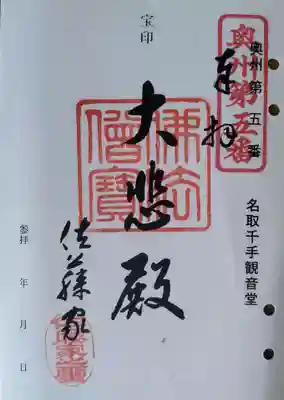 奥州第五番
奥州第五番
奉拝
名取千手観音堂
宝印
佛法僧寳
大悲殿
佐藤家
参拝 年 月 日